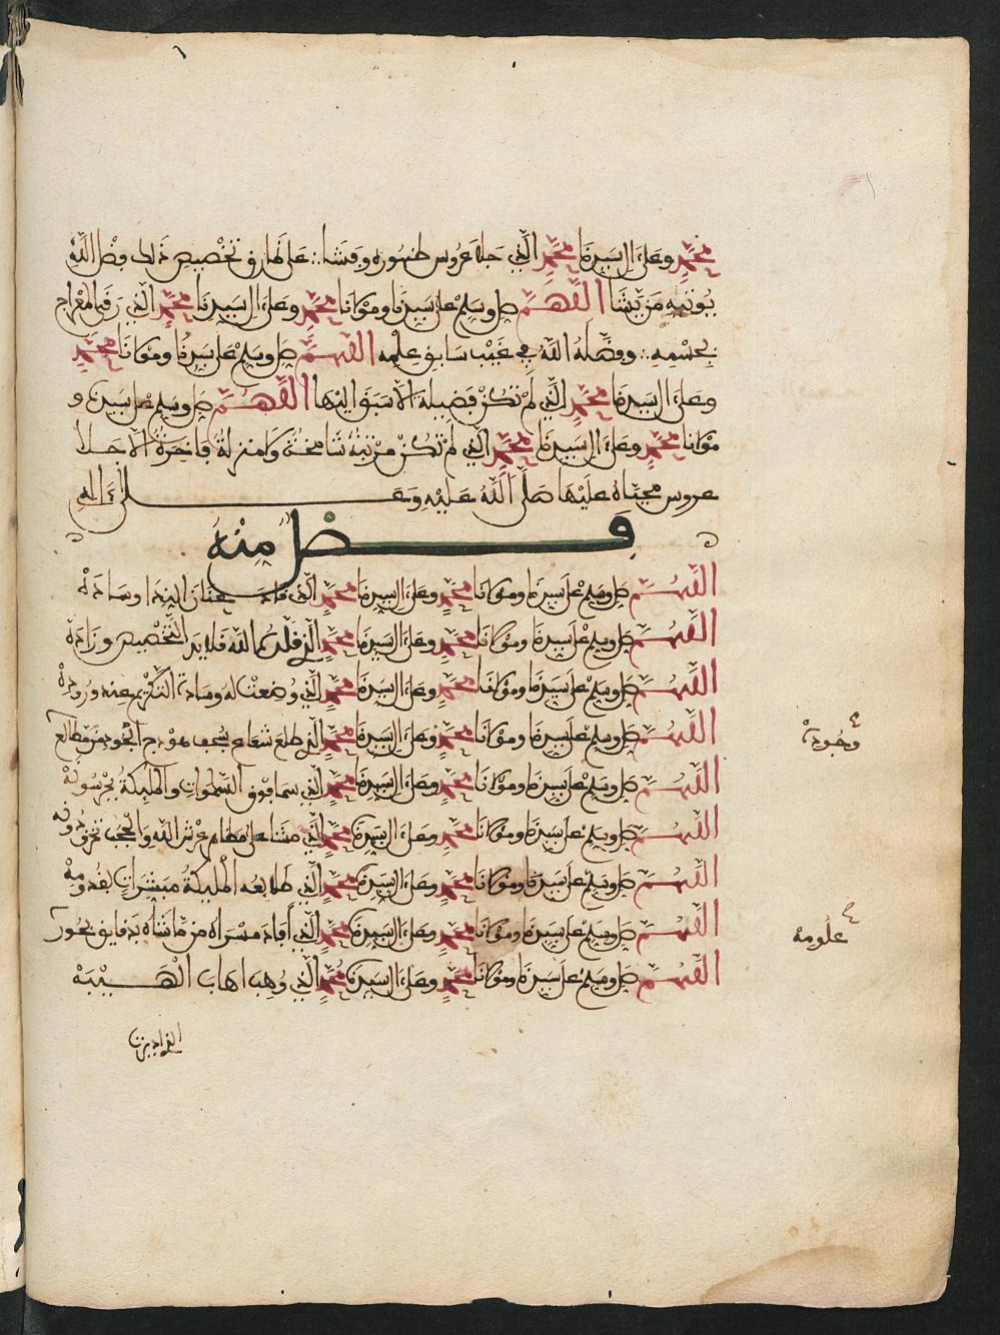 محمد وعلى ءال سيدنا محمد الذي جلا عروس ظهوره وفشا ∴ على لهارف تخصيص ذلك فضل الله
يوتيه من يشا اللهم صل وسلم على سيدنا ومولانا محمد وعلى ءال سيدنا محمد الذي رقى المعراج
بجسمه ∴ وفضله الله في غيب سابق علمه اللهم صل وسلم على سيدنا ومولانا محمد
وعلى ءال سيدنا محمد الذي لم تكن فضيلة الا سبق اليها اللهم صل وسلم على سيدنا و
مولانا محمد وعلى ءال سيدنا محمد الذي لم تكن مرتبة شامخة ولا منزلة فاخرة الا جلا
عروس مجتلاه عليها صلى الله عليه وعلى ءاله
فصل منه
اللهم صل وسلم على سيدنا ومولانا محمد وعلى ءال سيدنا محمد الذي قاد عنان الندا وساده
اللهم صل وسلم على سيدنا ومولانا محمد وعلى ءال سيدنا محمد الذي قلده الله قلايد التخصيص وزاده
اللهم صل وسلم على سيدنا ومولانا محمد وعلى ءال سيدنا محمد الذي وضعت له وسادة التكريم عند وروده
اللهم صل وسلم على سيدنا ومولانا محمد وعلى ءال سيدنا محمد الذي طلع شعاع يوسف هودج الجود من مطالع
اللهم صل وسلم على سيدنا ومولانا محمد وعلى ءال سيدنا محمد الذي سما فوق السموات والمليكة يحرسونه
اللهم صل وسلم على سيدنا ومولانا محمد وعلى ءال سيدنا محمد الذي مشا على مقام عرش الله والحجب
اللهم صل وسلم على سيدنا ومولانا محمد وعلى ءال سيدنا محمد الذي طلايعه المليكة مبشرات بقدومه
اللهم صل وسلم على سيدنا ومولانا محمد وعلى ءال سيدنا محمد الذي أفاد مسراه من ما شاه بدقايق بحور
اللهم صل وسلم على سيدنا ومولانا محمد وعلى ءال سيدنا محمد الذي وهب اهاب الهيبة
وجوده
علومه